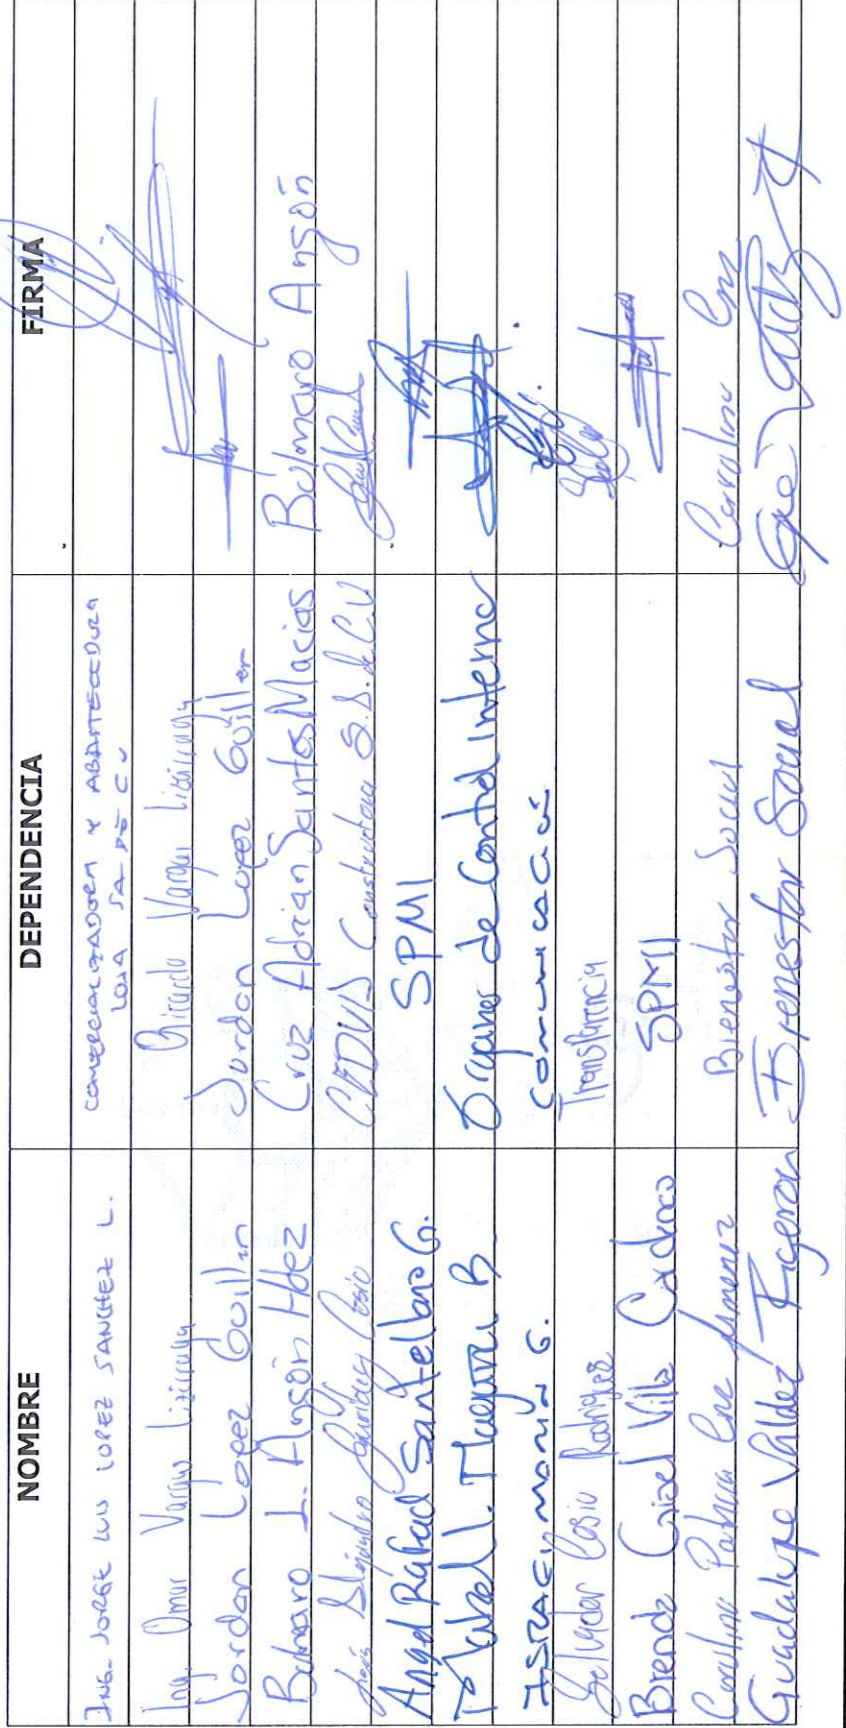 NOMBRE DEPENDENCIA FIRMA
ING. JORGE LUIS LOPEZ SANCHEZ L. COMERCIALIZADORA Y ABASTECEDORA
LOJA SA DE CV
Ing. Omar Vargas Lizárraga Ricardo Vargas Lizárraga
Jordan López Guillen Jordan Lopez Guillen
Bulmaro I. Angón Hdez Cruz Adrian Santos Macias Bulmaro Angón
Alejandro Cosio CEDVIS Constructora S.A. de C.V
Angel Rafael Santellano G. SPMI
Órgano de Control Interno
G. Comunicación
Salvador Cosio Rodriguez Transparencia
Brenda Gisel Villa Cadinco SPMI
Carolina Patricia Cruz Jimenez Bienestar Social Carolina Cruz
Guadalupe Valdez Figeroa Bienestar Social Gpe Valdez